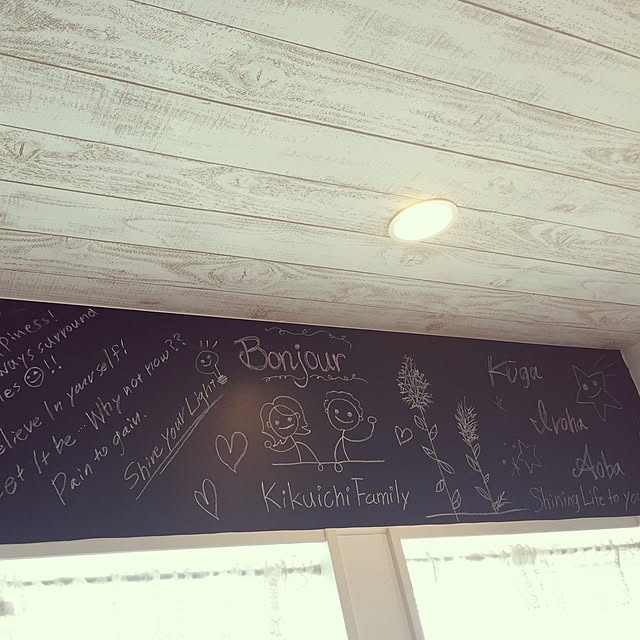 piness!
ways surround
les !!
elieve In yourself!
et It be... Why not now??
Pain to gain.
Shine Your Light
Bonjour
Kikuichi Family
Kūga
Iroha
Aoba
Shining Life to yo